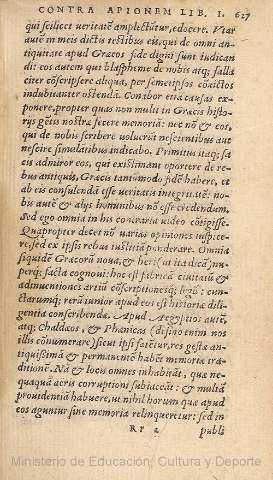 CONTRA APIONEM LIB. I. 627
qui scilicet veritatē amplectūtur, edocere. Vtar
autē in meis dictis testibus eis, qui de omni an-
tiquitate apud Græcos fide digni sunt iudican
di: eos autem qui blaspheme de nobis atq; falla
citer cōscripsere aliqua, per semetipsos conictos
indubitanter ostendā. Conabor etiā causas ex-
ponere, propter quas non multi in Græcis histo
rijs gētis nostra fecere memoriā: nec nō & eos,
qui de nobis scribere voluerūt nescientibus aut
nescire simulātibus indicabo. Primitus itaq; sa
tis admiror eos, qui existimant oportere de re-
bus antiquis, Græcis tantūmodo fidē habere, et
ab eis consulendā esse veritatis integritatē: no-
bis autē & alijs hominibus nō esse credendum.
Sed ego omnia in his contraria video cōtigisse.
Quapropter decet nō varias opiniones inspice-
re, sed ex ipsis rebus iustitiā ponderare. Omnia
siquidē Græcorū noua, & heri (vt ita dicā) nu-
perq; facta cognoui: hoc est fabricā ciuitatū &
adinuentiones artiū cōscriptionesq; legū: cun-
ctarumq; rerū iunior apud eos est historiæ dili-
gentia conscribendæ. Apud Aegyptios autē,
atq; Chaldæos, & Phœnicas (desino enim nos
illis cōnumerare) sicut ipsi fatētur, res gestæ an-
tiquissimā & permanentē habēt memoriæ tra-
ditionē. Nā & locis omnes inhabitāt, quæ ne-
quaquā aeris corruptioni subiaceāt: & multā
prouidentiā habuere, vt nihil horum quæ apud
eos aguntur sine memoria relinqueretur: sed in
Rr 2 publi
Ministerio de Educación, Cultura y Deporte